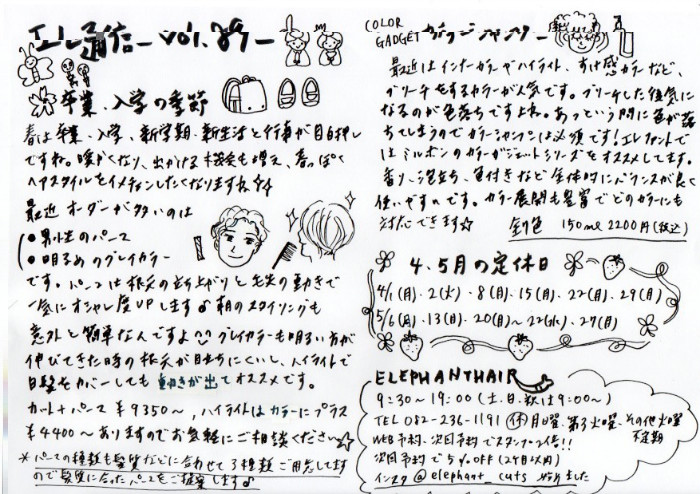 エレ通信 vol.89
卒業、入学の季節
春は卒業、入学、新学期、新生活と行事が目白押し
ですね。暖かくなり、出かける機会も増え、春っぽく
ヘアスタイルをイメチェンしたくなりますね☆☆
最近オーダーが多いのは
●男性のパーマ
●明るめのグレイカラー
です。パーマは根元の立ち上がりと毛先の動きで
一気にオシャレ度UPします♪朝のスタイリングも
意外と簡単なんですよ^^グレイカラーも明るい方が
伸びてきた時の根元が目立ちにくいし、ハイライトで
白髪をカバーしても動きが出てオススメです。
カット+パーマ¥9350〜、ハイライトはカラーにプラス
¥4400〜ありますのでお気軽にご相談ください☆
*パーマの種類も髪質などに合わせて3種類ご用意してます
ので髪質に合ったパーマをご提案します♪
COLOR GADGET カラーガジェット
最近はインナーカラーやハイライト、すけ感カラーなど、
ブリーチをするカラーが人気です。ブリーチした後気に
なるのが色落ちですよね。あっという間に色が落
ちてしまうのでカラーシャンプーは必須です!エレファントで
はミルボンのカラーガジェットシリーズをオススメしてます。
香り、泡立ち、色付きなど全体的にバランスが良く
使いやすいです。カラー展開も豊富でどのカラーにも
対応できます☆ 全9色 150ml 2200円(税込)
4、5月の定休日
4/1(月)、2(火)、8(月)、15(月)、22(月)、29(月)
5/6(月)、13(月)、20(月)〜22(水)、27(月)
ELEPHANTHAIR
9:30〜19:00 (土、日、祝は9:00〜)
TEL 082-236-1191 休 月曜日、第3火曜、その他火曜不定期
WEB予約、次回予約でスタンプ2倍!!
次回予約で5%OFF(2ヶ月以内)
インスタ@elephant_cuts 始りました